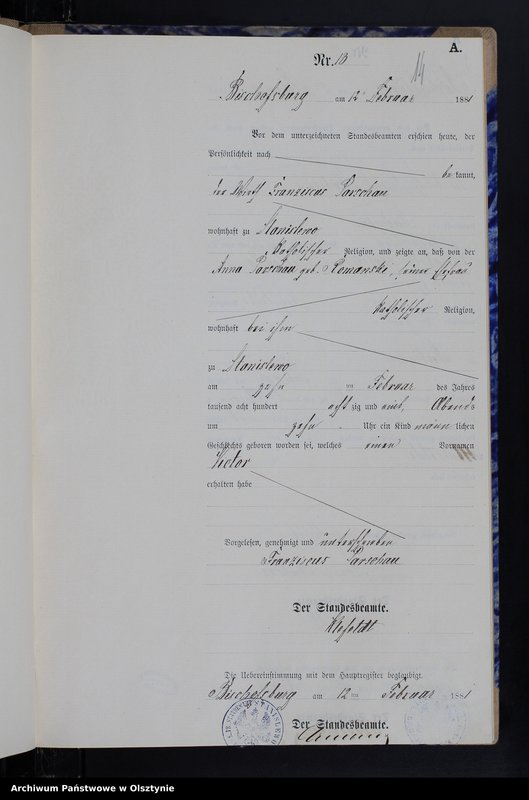 A.
Nr. 13
14
Bischofsburg am 12 Februar 1881
Vor dem unterzeichneten Standesbeamten erschien heute, der
Persönlichkeit nach
be kannt,
der Wirth Franziscus Parschau
wohnhaft zu Stanislewo
katholischer Religion, und zeigte an, daß von der
Anna Parschau geb. Romanski, seiner Ehefrau
katholischer Religion,
wohnhaft bei ihm
zu Stanislewo
am zehn ten Februar des Jahres
tausend acht hundert acht zig und eins, Abends
um zehn Uhr ein Kind männ lichen
Geschlechts geboren worden sei, welches einen Vornamen
Victor
erhalten habe
Vorgelesen, genehmigt und unterschrieben
Franziscus Parschau
Der Standesbeamte.
Die Uebereinstimmung mit dem Hauptregister beglaubigt.
Bischofsburg am 12 ten Februar 1881
Der Standesbeamte.
Archiwum Państwowe w Olsztynie